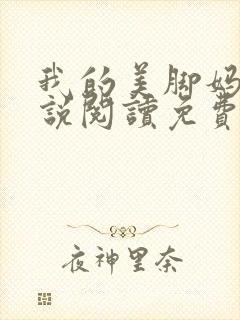 我的美脚妈
說閱讀免費
夜神里奈